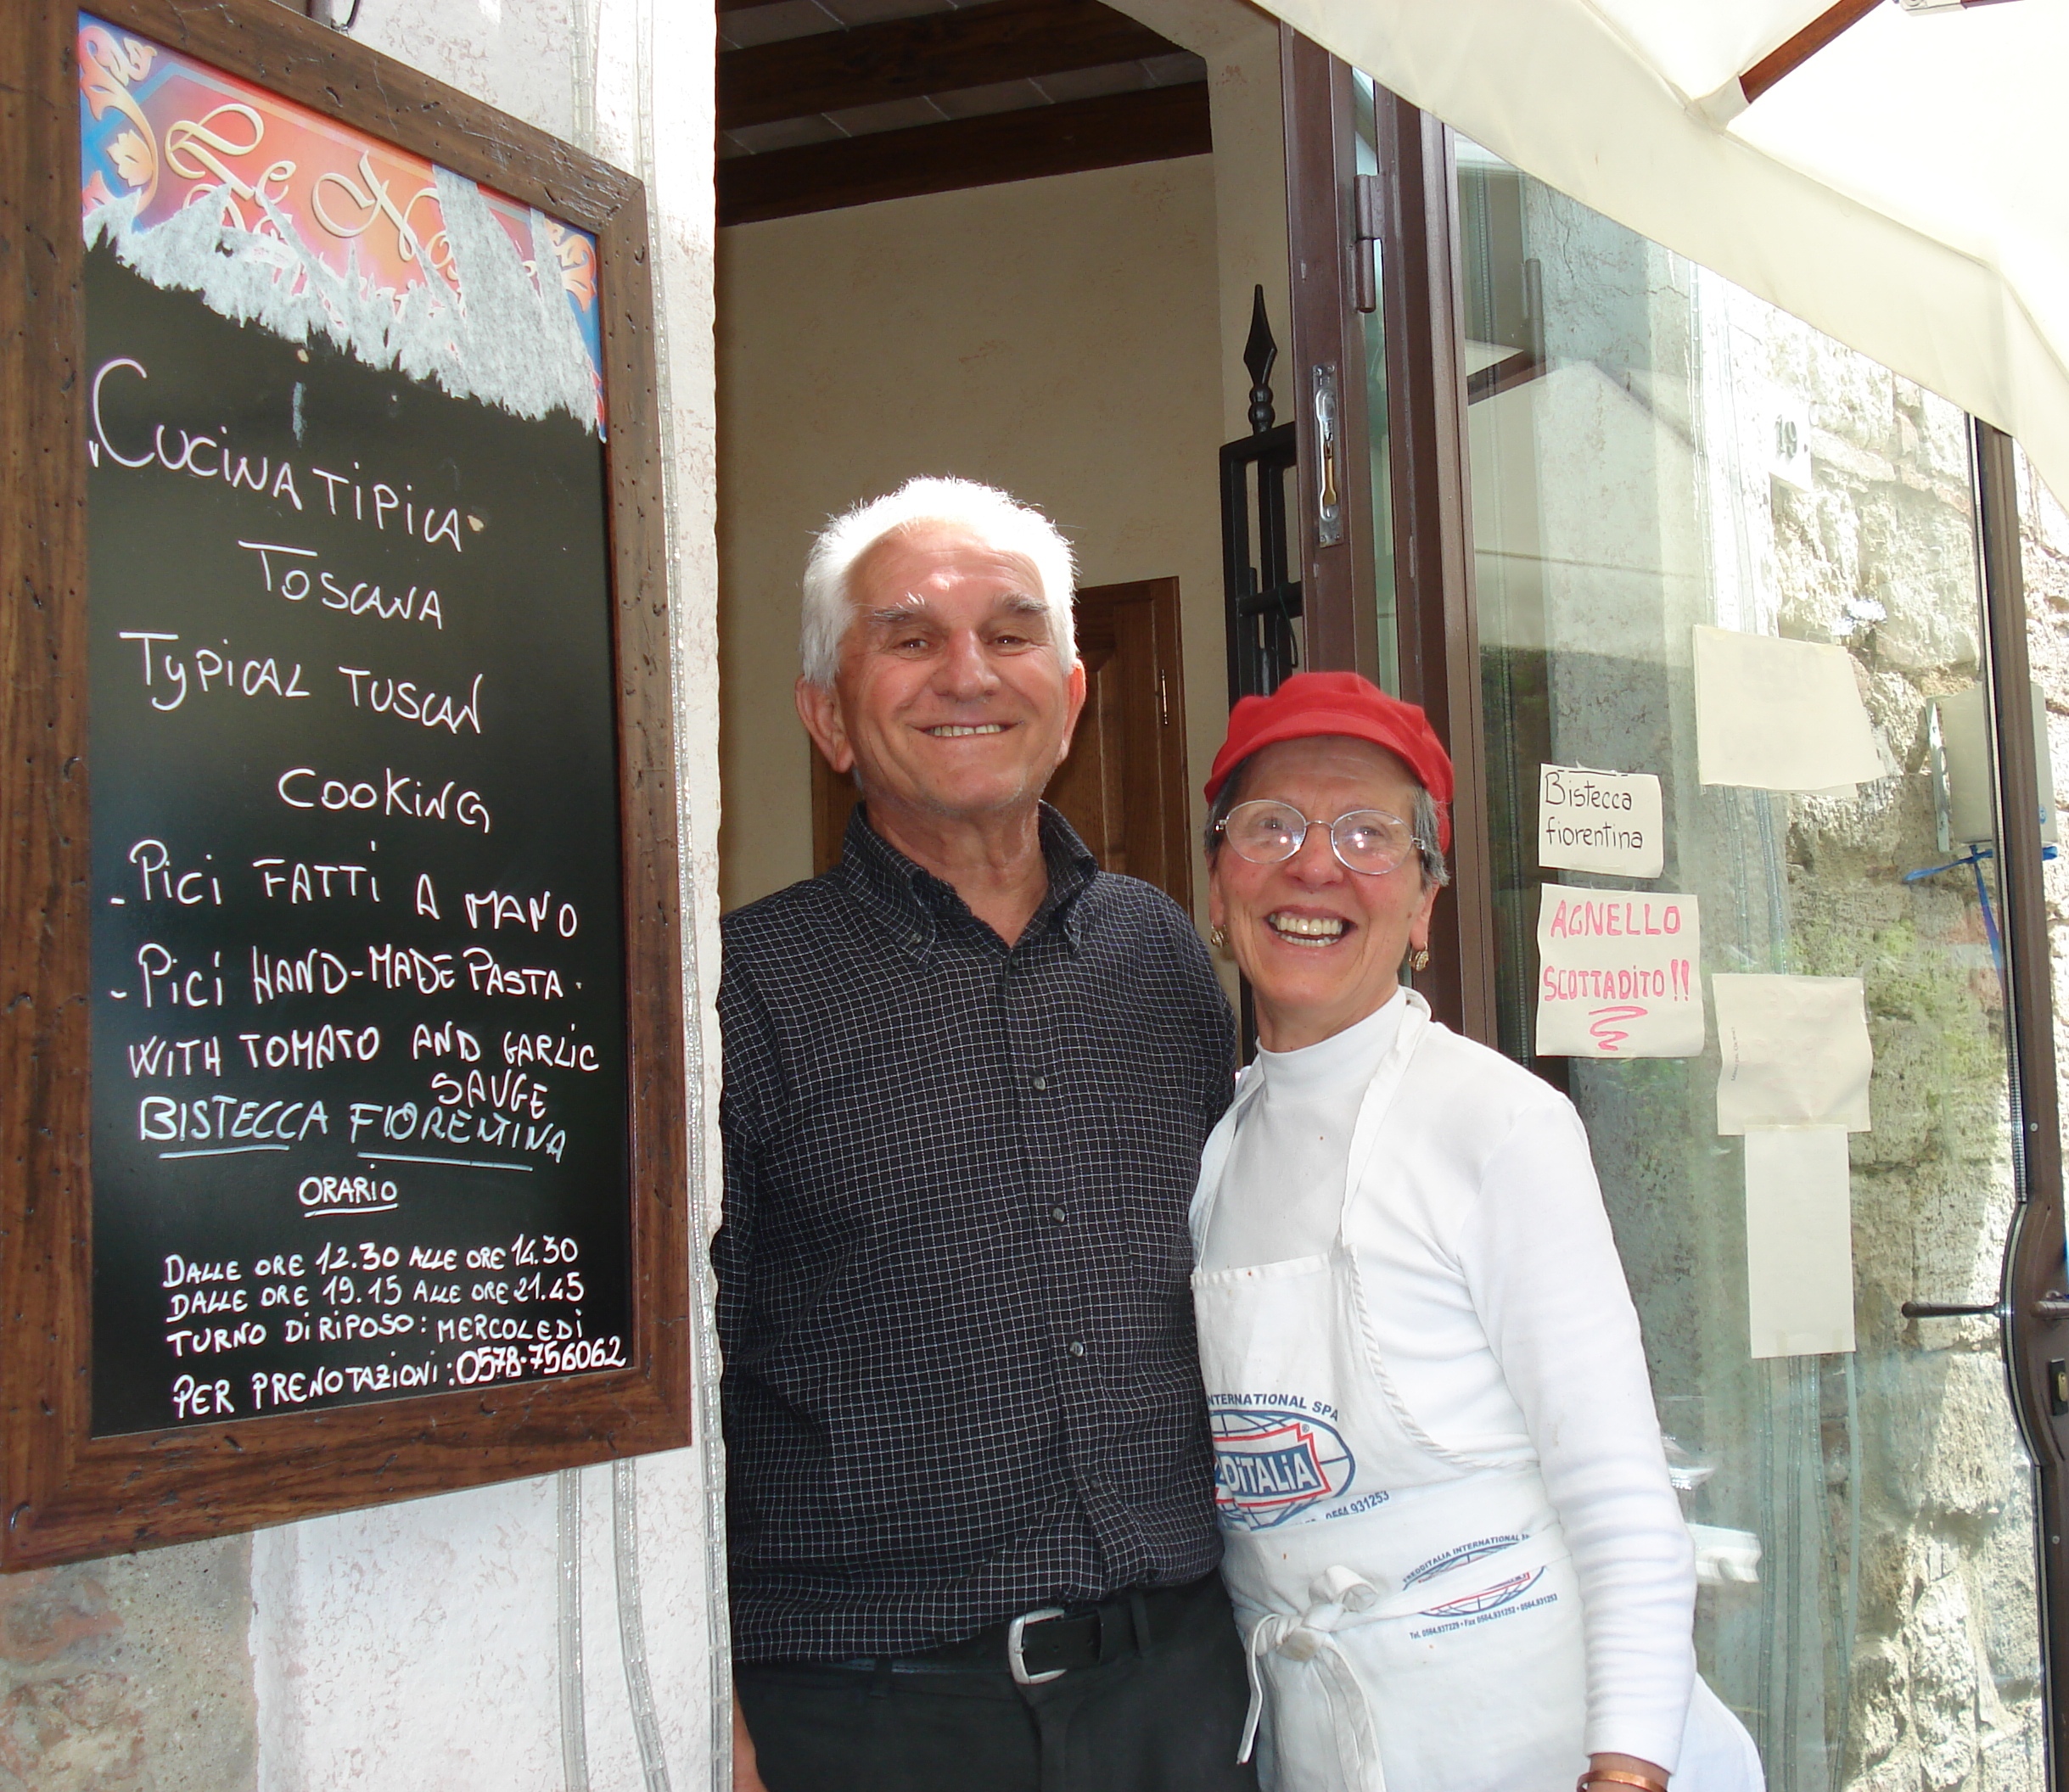 Le No
"CUCINA TIPICA"
TOSCANA
TYPICAL TUSCAN
COOKING
- PICI FATTI A MANO
- PICI HAND-MADE PASTA.
WITH TOMATO AND GARLIC
SAUGE
BISTECCA FIORENTINA
ORARIO
DALLE ORE 12.30 ALLE ORE 14.30
DALLE ORE 19.15 ALLE ORE 21.45
TURNO DI RIPOSO: MERCOLEDÌ
PER PRENOTAZIONI: 0578-756062
19
Bistecca
fiorentina
AGNELLO
SCOTTADITO!!
INTERNATIONAL SPA
DITALIA
0564 931253
FREDDITALIA INTERNATIONAL
Tel. 0564.937229 • Fax 0564.931252 • 0564.931253